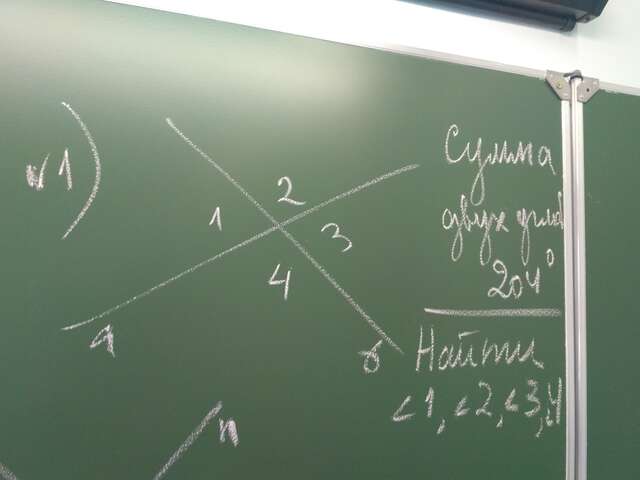 √1)
1
2
3
4
a
б
n
Сумма
двух углов
204°
Найти
<1, <2, <3, 4